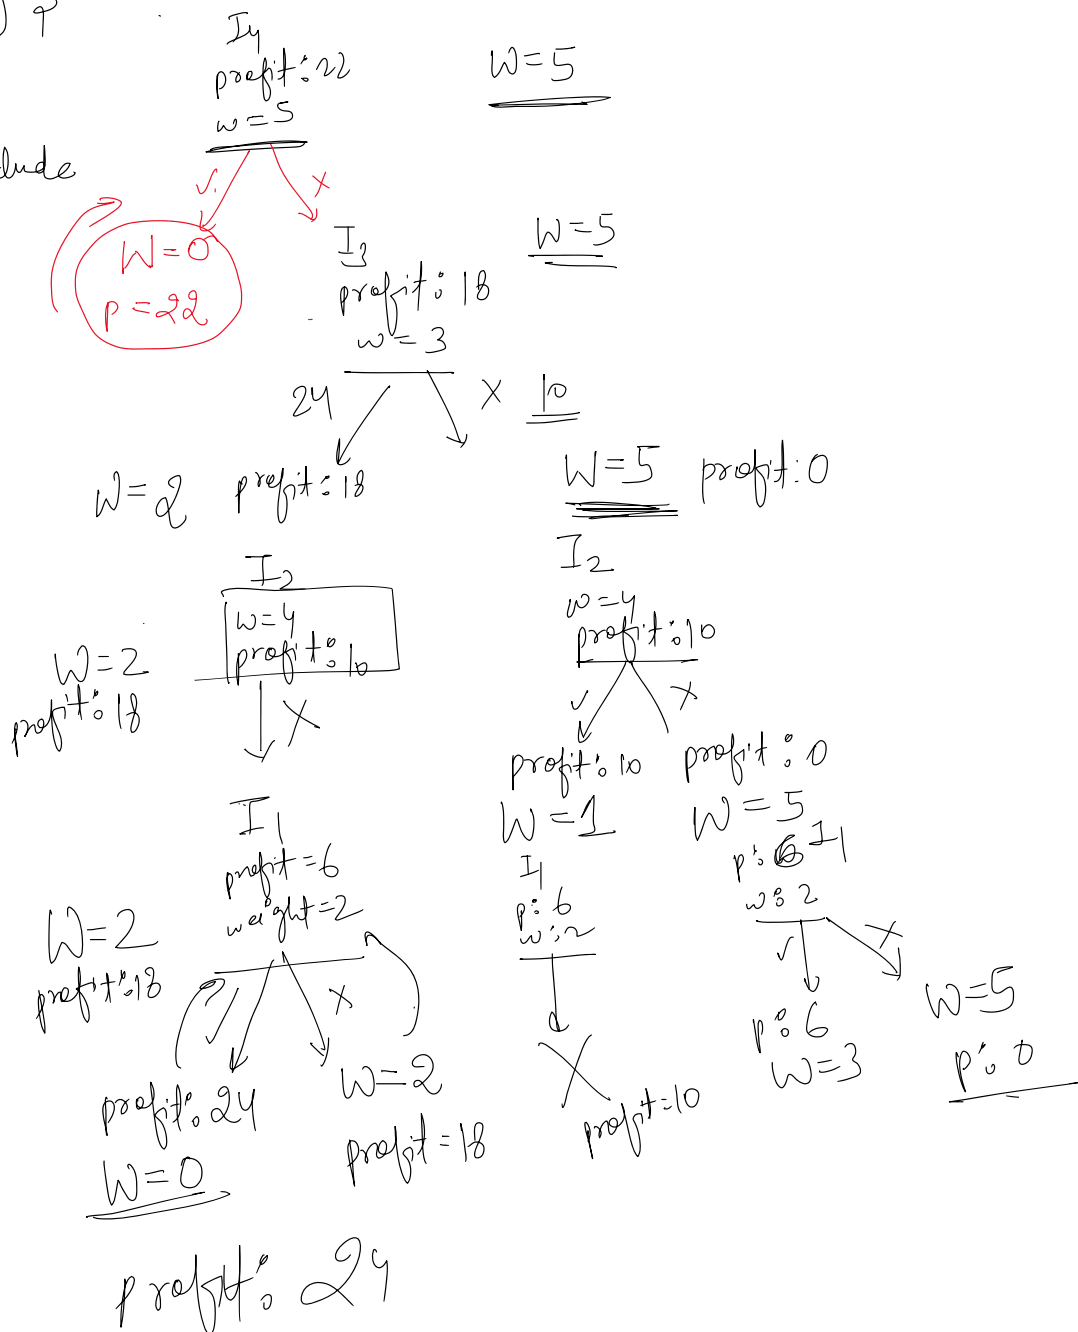 I4
profit: 22
w = 5
W = 5
lude
✓ X
W = 0
p = 22
I3
profit: 18
w = 3
W = 5
24
X 10
W = 2 profit: 18
W = 5 profit: 0
I2
w = 4
profit: 10
W = 2
profit: 18
X
I2
w = 4
profit: 10
✓ X
profit: 10
W = 1
profit: 0
W = 5
I1
profit = 6
weight = 2
W = 2
profit: 18
X
I1
p: 6
w: 2
p: 6 I1
w: 2
✓ X
profit: 24
W = 0
W = 2
profit = 18
X
profit = 10
p: 6
W = 3
W = 5
p: 0
profit: 24